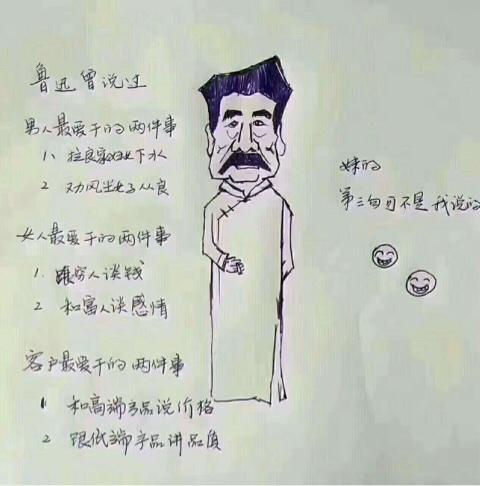 鲁迅曾说过
男人最爱干的两件事
1、拉良家妇女下水
2 劝风尘女子从良
女人最爱干的两件事
1. 跟穷人谈钱
2 和富人谈感情
客户最爱干的两件事
1 和高端产品说价格
2 跟低端产品讲品质
妹的
第三句可不是我说的